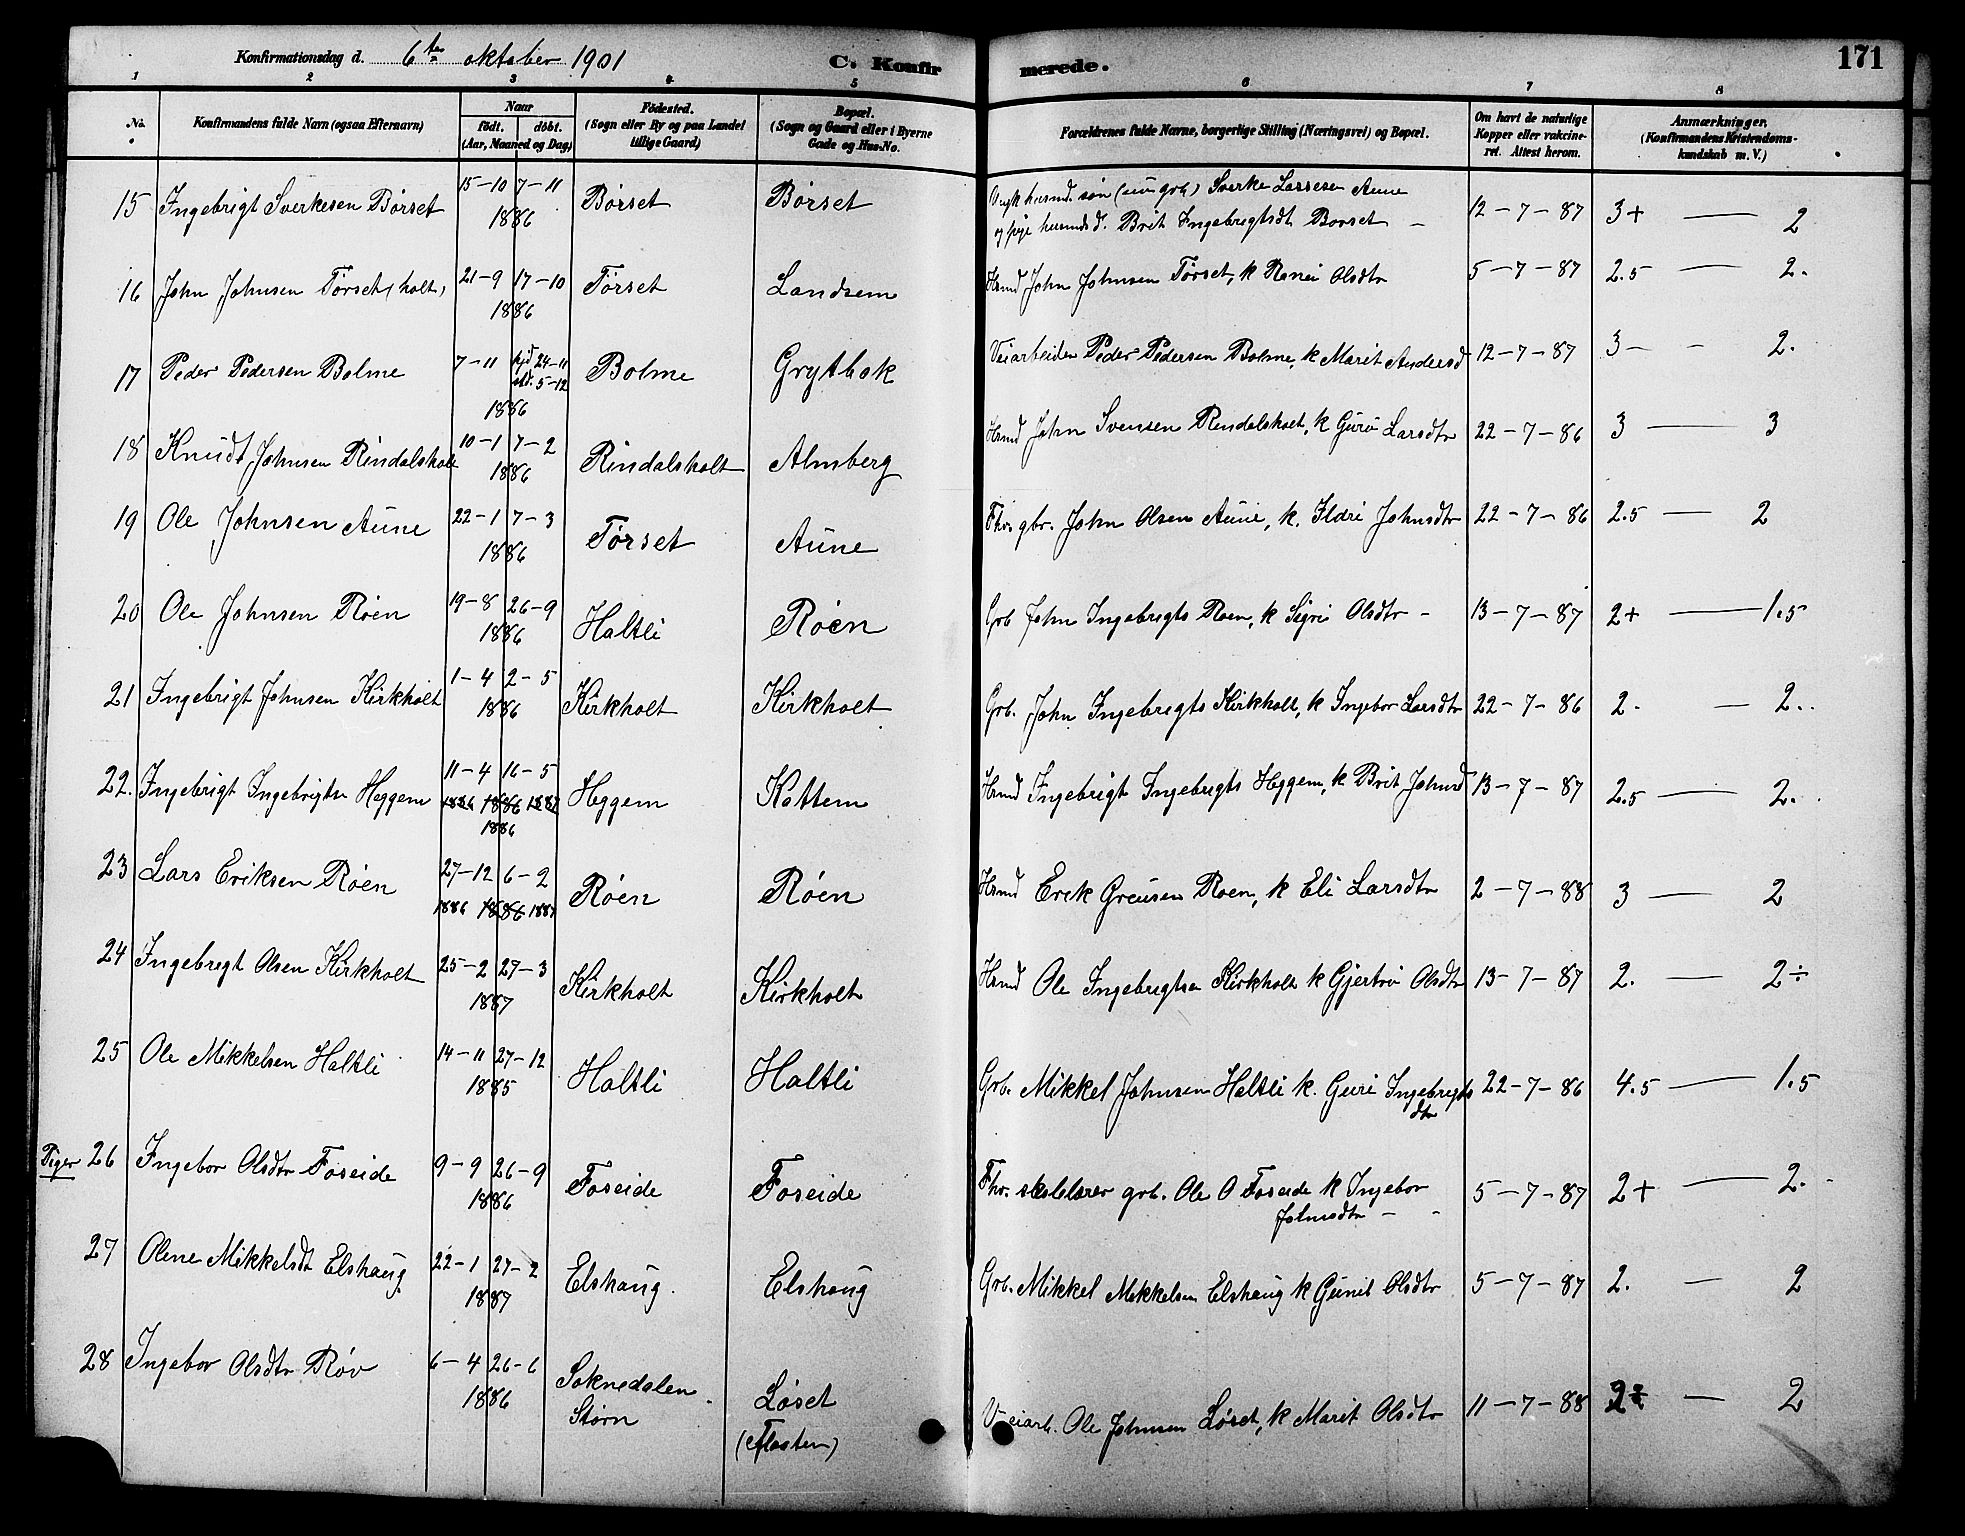 Konfirmationsdag d. 6te oktober 1901 C. Konfirmerede. 171
1 2 3 4 5 6 7 8
No. Konfirmandens fulde Navn (ogsaa Efternavn) Naar födt. döbt. (Aar, Maaned og Dag) Födested. (Sogn eller By og paa Landet tillige Gaard) Bopæl. (Sogn og Gaard eller i Byerne Gade og Hus-No. Forældrenes fulde Navne, borgerlige Stilling (Næringsvei) og Bopæl. Om havt de naturlige Kopper eller vakcineret. Attest herom. Anmærkninger. (Konfirmandens Kristendomskundskab m. V.)
15 Ingebrigt Sverkesen Børset 15-10 7-11 1886 Børset Børset Ungk husmd. søn (nu grb) Sverke Lassesen Aune
og pige husmds d. Brit Ingebrigtsdt Børset - 12-7-87 3+ — 2
16 John Johnsen Tørset (holt) 21-9 17-10 1886 Tørset Landsem Hsmd John Johnsen Tørset, k Ranei Olsdtr 5-7-87 2.5 — 2.
17 Peder Pedersen Bolme 7-11 hjd 24-11 std. 5-12 1886 Bolme Grytbak Veiarbeider Peder Pedersen Bolme, k Marit Andersd 12-7-87 3 - - 2.
18 Knudt Johnsen Rindalsholt 10-1 7-2 1886 Rindalsholt Almberg Hsmd John Svensen Rindalsholt, k Guru Larsdtr 22-7-86 3 — 3
19 Ole Johnsen Aune 22-1 7-3 1886 Tørset Aune Fhv. gbr. John Olsen Aune, k. Ildri Johnsdtr 22-7-86 2.5 — 2
20 Ole Johnsen Røen 19-8 26-9 1886 Haltli Røen Grb John Ingebrigts Roen, k Sigri Olsdtr - 13-7-87 2+ — 1.5
21 Ingebrigt Johnsen Kirkholt 1-4 2-5 1886 Kirkholt Kirkholt Grb. John Ingebrigts Kirkholt, k Ingebor Larsdtr 22-7-86 2. - 2..
22. Ingebrigt Ingebrigtsn Heggem 11-4 16-5 1886 1886 1887 1886 Heggem Kattem Hsmd Ingebrigt Ingebrigts Heggem, k Brit Johnsd 13-7-87 2.5 — 2.
23 Lars Eriksen Røen 27-12 6-2 1886 1886 1887 Røen Røen Hsmd Erik Greusen Roen, k Eli Larsdtr 2-7-88 3 — 2
24 Ingebregt Olsen Kirkholt 25-2 27-3 1887 Kirkholt Kirkholt Hsmd Ole Ingebrigtsn Kirkholt k Gjertru Olsdtr 13-7-87 2. — 2÷
25 Ole Mikkelsen Haltli 14-11 27-12 1885 Haltli Haltli Grb. Mikkel Johnsen Haltli k. Guri Ingebrigts
dtr 22-7-86 4.5 — 1.5
Piger 26 Ingebor Olsdtr Foseide 9-9 26-9 1886 Foseide Foseide Fhv. skolelærer grb. Ole O Foseide k Ingebor
Johnsdtr - - 5-7-87 2+ — 2.
27 Olene Mikkelsdt Elshaug 22-1 27-2 1887 Elshaug. Elshaug Grb. Mikkel Mikkelsen Elshaug k Gunil Olsdtr 5-7-87 2. — 2
28 Ingebor Olsdtr Røv 6-4 26-6 1886 Soknedalen
Støren Løset
(Flosten) Veiarb. Ole Johnsen Løset, k Marit Olsdtr 11-7-88 2÷ — 2